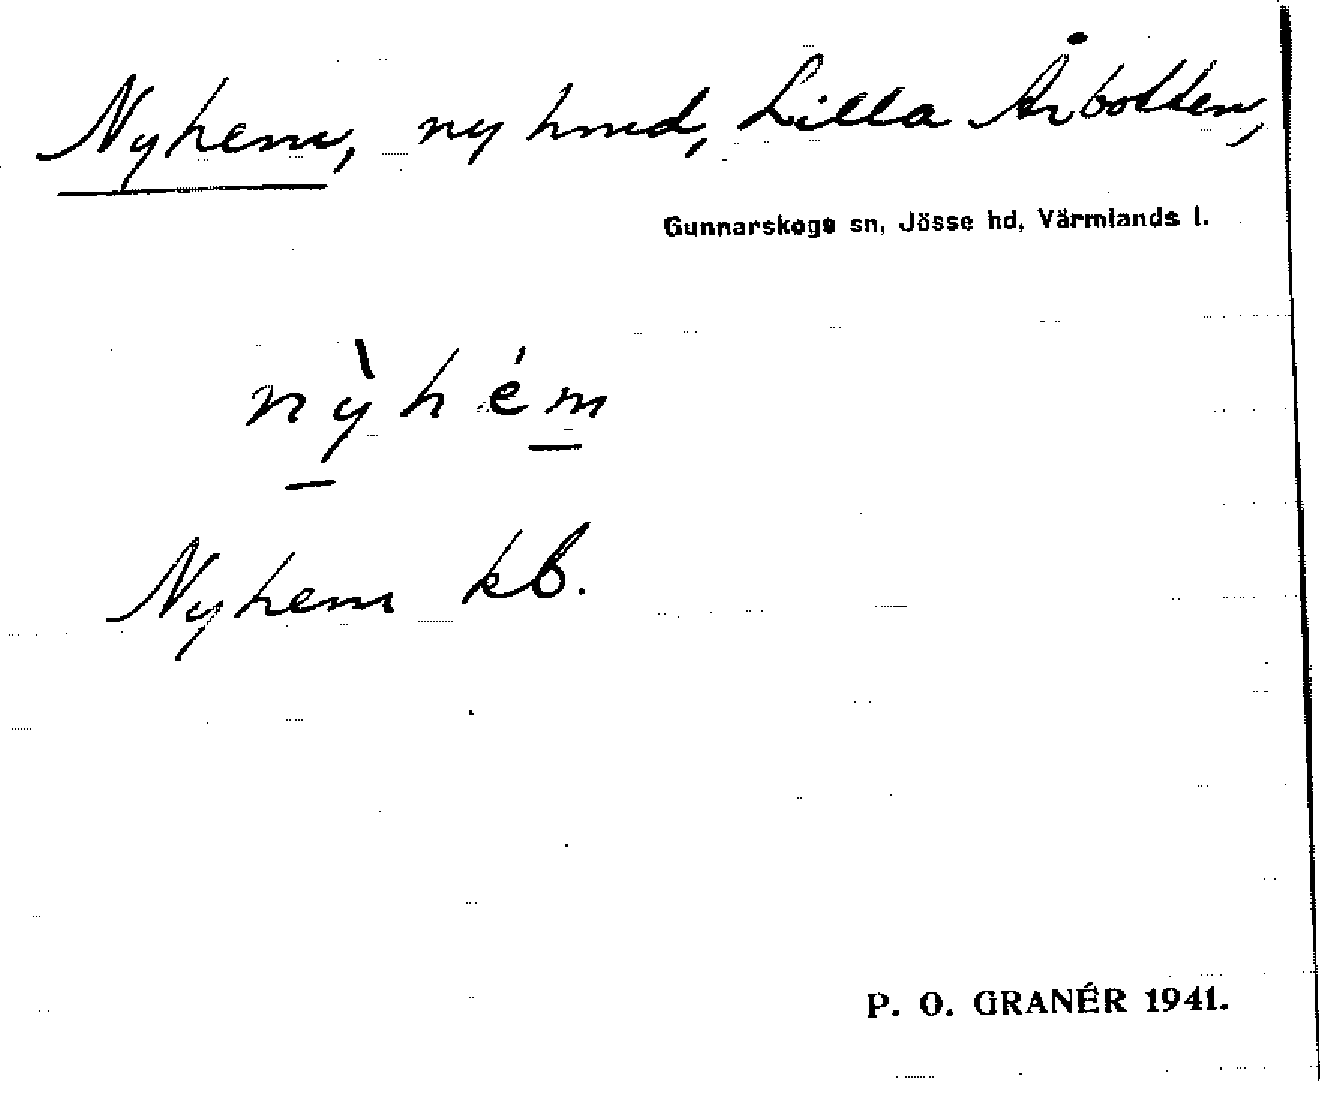 Nyhem, ny hmd, Lilla Årbotten,
Gunnarskogs sn, Jösse hd, Värmlands l.
nỳhém
Nyhem kb.
P. O. GRANÉR 1941.